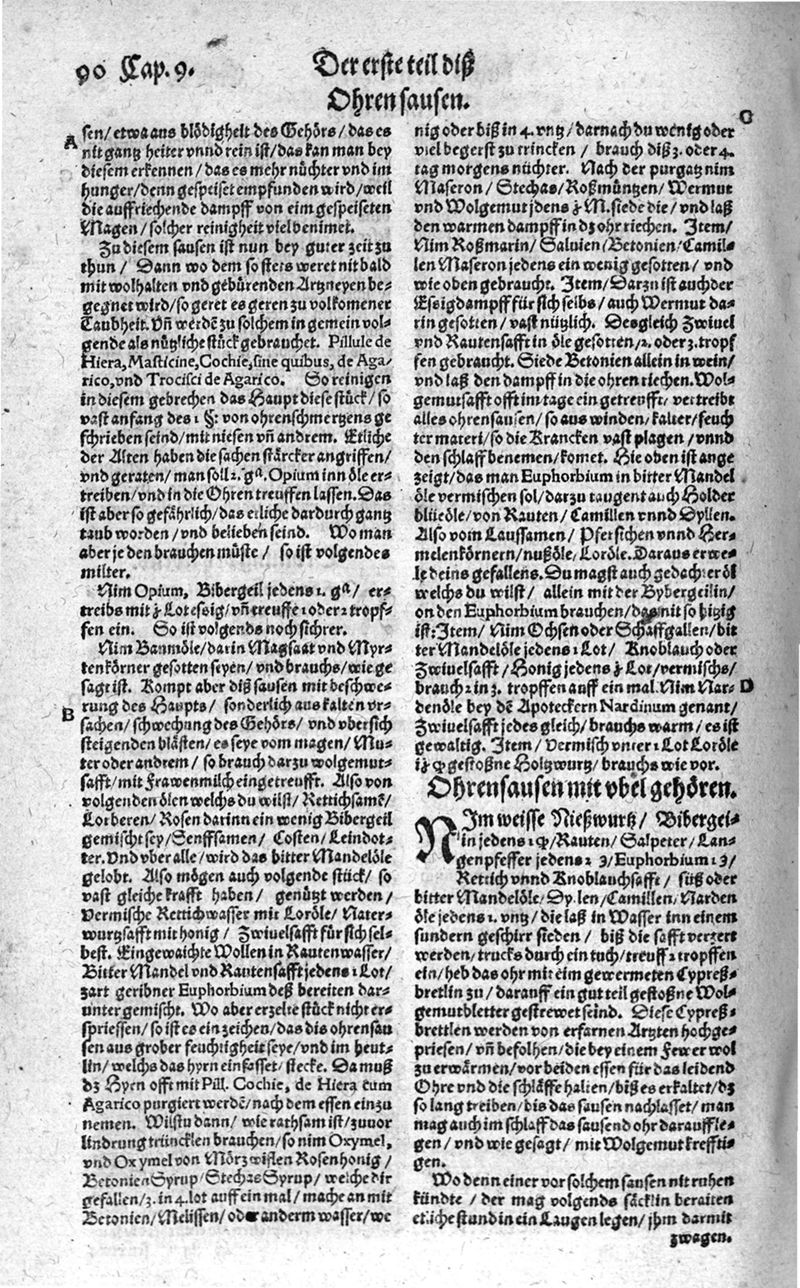 90 Cap. 9.
Der erste teil diß
Ohren sausen.
A
sen/ etwa aus blödigheit des Gehörs/ das es
nit gantz heiter vnnd rein ist/ das kan man bey
diesem erkennen/ das es mehr nüchter vnd im
hunger/ denn gespeiset empfunden wird/ weil
die auffriechende dampff von eim gespeiseten
Magen/ solcher reinigheit viel benimet.
Zu diesem sausen ist nun bey guter zeit zu
thun/ Dann wo dem so stets weret nit bald
mit wolhalten vnd gebürenden Artzneyen be-
gegnet wird/ so geret es geren zu volkomener
Taubheit. Vñ werdẽ zu solchem in gemein vol-
gende als nützliche stück gebrauchet. Pillule de
Hiera, Masticine, Cochie, sine quibus, de Aga-
rico, vnd Trocisci de Agarico. So reinigen
in diesem gebrechen das Haupt diese stück/ so
vast anfang des 1 §: von ohrenschmertzens ge
schrieben seind/ mit niesen vñ andrem. Etliche
der Alten haben die sachen stärcker angriffen/
vnd geraten/ man soll 2. gª. Opium inn öle er-
treiben/ vnd in die Ohren treuffen lassen. Das
ist aber so gefährlich/ das etliche dardurch gantz
taub worden/ vnd belieben seind. Wo man
aber je den brauchen müste/ so ist volgendes
milter.
Nim Opium, Bibergeil jedens 1. gª/ er-
treibs mit ɉ Lot essig/ vñ treuffe 1 oder 2 tropf-
fen ein. So ist volgends noch sichrer.
Nim Banmöle/ darin Magsaat vnd Myr-
tenkörner gesotten seyen/ vnd brauchs/ wie ge
sagt ist. Kompt aber diß sausen mit beschwe-
B
rung des Haupts/ sonderlich aus kalten vr-
sachen/ schwechung des Gehörs/ vnd vbersich
steigenden blästen/ es seye vom magen/ Mu-
ter oder andrem/ so brauch darzu wolgemut-
safft/ mit Frawenmilch eingetreufft. Also von
volgenden ölen welchs du wilst/ Rettichsamẽ/
Lorberen/ Rosen darinn ein wenig Bibergeil
gemischt sey/ Senffsamen/ Costen/ Leindot-
ter. Vnd vber alle/ wird das bitter Mandelöle
gelobt. Also mögen auch volgende stück/ so
vast gleiche krafft haben/ genützt werden/
Vermische Rettichwasser mit Loröle/ Nater-
wurtzsafft mit honig/ Zwiuelsafft für sich sel-
best. Eingeweichte Wollen in Rautenwasser/
Bitter Mandel vnd Rautensafft jedens 1 Lot/
zart geribner Euphorbium deß bereiten dar-
unter gemischt. Wo aber erzelte stück nicht er-
spriessen/ so ist es ein zeichen/ das dis ohrensau
sen aus grober feuchtigheit seye/ vnd im heut-
lin/ welchs das hyrn einfasset/ stecke. Da muß
dz Hyrn offt mit Pill. Cochie, de Hiera cum
Agarico purgiert werdẽ/ nach dem essen einzu
nemen. Wilstu dann/ wie rathsam ist/ zuuor
lindrung trüncklen brauchen/ so nim Oxymel,
vnd Oxymel von Mörzwiflen Rosenhonig/
Betonien Syrup/ Stechas Syrup/ welche dir
gefallen/ 3. in 4. lot auff ein mal/ mache an mit
Betonien/ Melissen/ oder anderm wasser/ we
C
nig oder biß in 4. vntz/ darnach du wenig oder
viel begerst zu trincken/ brauch diß 3. oder 4.
tag morgens nüchter. Nach der purgatz nim
Maseron/ Stechas/ Roßmüntzen/ Wermut
vnd Wolgemut jdens ɉ M. siede die/ vnd laß
den warmen dampff in dz ohr riechen. Item/
Nim Roßmarin/ Saluien/ Betonien/ Camil-
len Maseron jedens ein wenig gesotten/ vnd
wie oben gebraucht. Item/ Darzu ist auch der
Essigdampff für sich selbs/ auch Wermut da-
rin gesotten/ vast nützlich. Desgleich Zwiuel
vnd Rautensafft in öle gesotten/ 2. oder 3. tropf
fen gebraucht. Siede Betonien allein in wein/
vnd laß den dampff in die ohren riechen. Wol-
gemutsafft offt im tage eingetreufft/ vertreibt
alles ohrensausen/ so aus winden/ kalter/ feuch
ter materi/ so die Krancken vast plagen/ vnnd
den schlaff benemen/ komet. Hie oben ist ange
zeigt/ das man Euphorbium in bitter Mandel
öle vermischen sol/ darzu taugent auch Holder
blüeöle/ von Rauten/ Camillen vnnd Dyllen.
Also vom Laussamen/ Pfersichen vnnd Her-
melenkörnern/ nußöle/ Loröle. Daraus erwe-
le deins gefallens. Du magst auch gedachter öl
welchs du wilst/ allein mit der Bybergeilin/
on den Euphorbium brauchen/ das nit so hitzig
ist: Item/ Nim Ochsen oder Schaffgallen/ bit
ter Mandelöle jedens 1 Lot/ Knoblauch oder
Zwiuelsafft/ Honig jedens ɉ Lot/ vermischs/
brauch 2 in 3. tropffen auff ein mal. Nim Nar-
D
denöle bey dẽ Apoteckern Nardinum genant/
Zwiuelsafft jedes gleich/ brauchs warm/ es ist
gewaltig. Item/ Vermisch vnter 1 Lot Loröle
gestoßne Holtzwurtz/ brauchs wie vor.
Ohrensausen mit vbel gehören.
NIm weisse Nießwurtz/ Bibergei-
lin jedens 1 /Rauten/ Salpeter/ Lan-
genpfeffer jedens 2 ℈/ Euphorbium 1 ℈/
Rettich vnnd Knoblauchsafft/ süß oder
bitter Mandelöle/ Dylen/ Camillen/ Narden
öle jedens 1. vntz/ die laß in Wasser inn einem
sundern geschirr sieden/ biß die safft verzert
werden/ trucks durch ein tuch/ treuff 2 tropffen
ein/ heb das ohr mit eim gewermeten Cypreß-
bretlin zu/ darauff ein gut teil gestoßne Wol-
gemutbletter gestrewet seind. Diese Cypreß-
brettlen werden von erfarnen Artzten hochge-
priesen/ vñ befolhen/ die bey einem Fewer wol
zu erwärmen/ vor beiden essen für das leidend
Ohre vnd die schläffe halten/ biß es erkaltet/ dz
so lang treiben/ bis das sausen nachlasset/ man
mag auch im schlaff das sausend ohr darauff le-
gen/ vnd wie gesagt/ mit Wolgemut krefftti-
gen.
Wo denn einer vor solchem sausen nit ruhen
kündte/ der mag volgends säcklin bereiten
etliche stund in ein Laugen legen/ jhm darmit
zwagen.